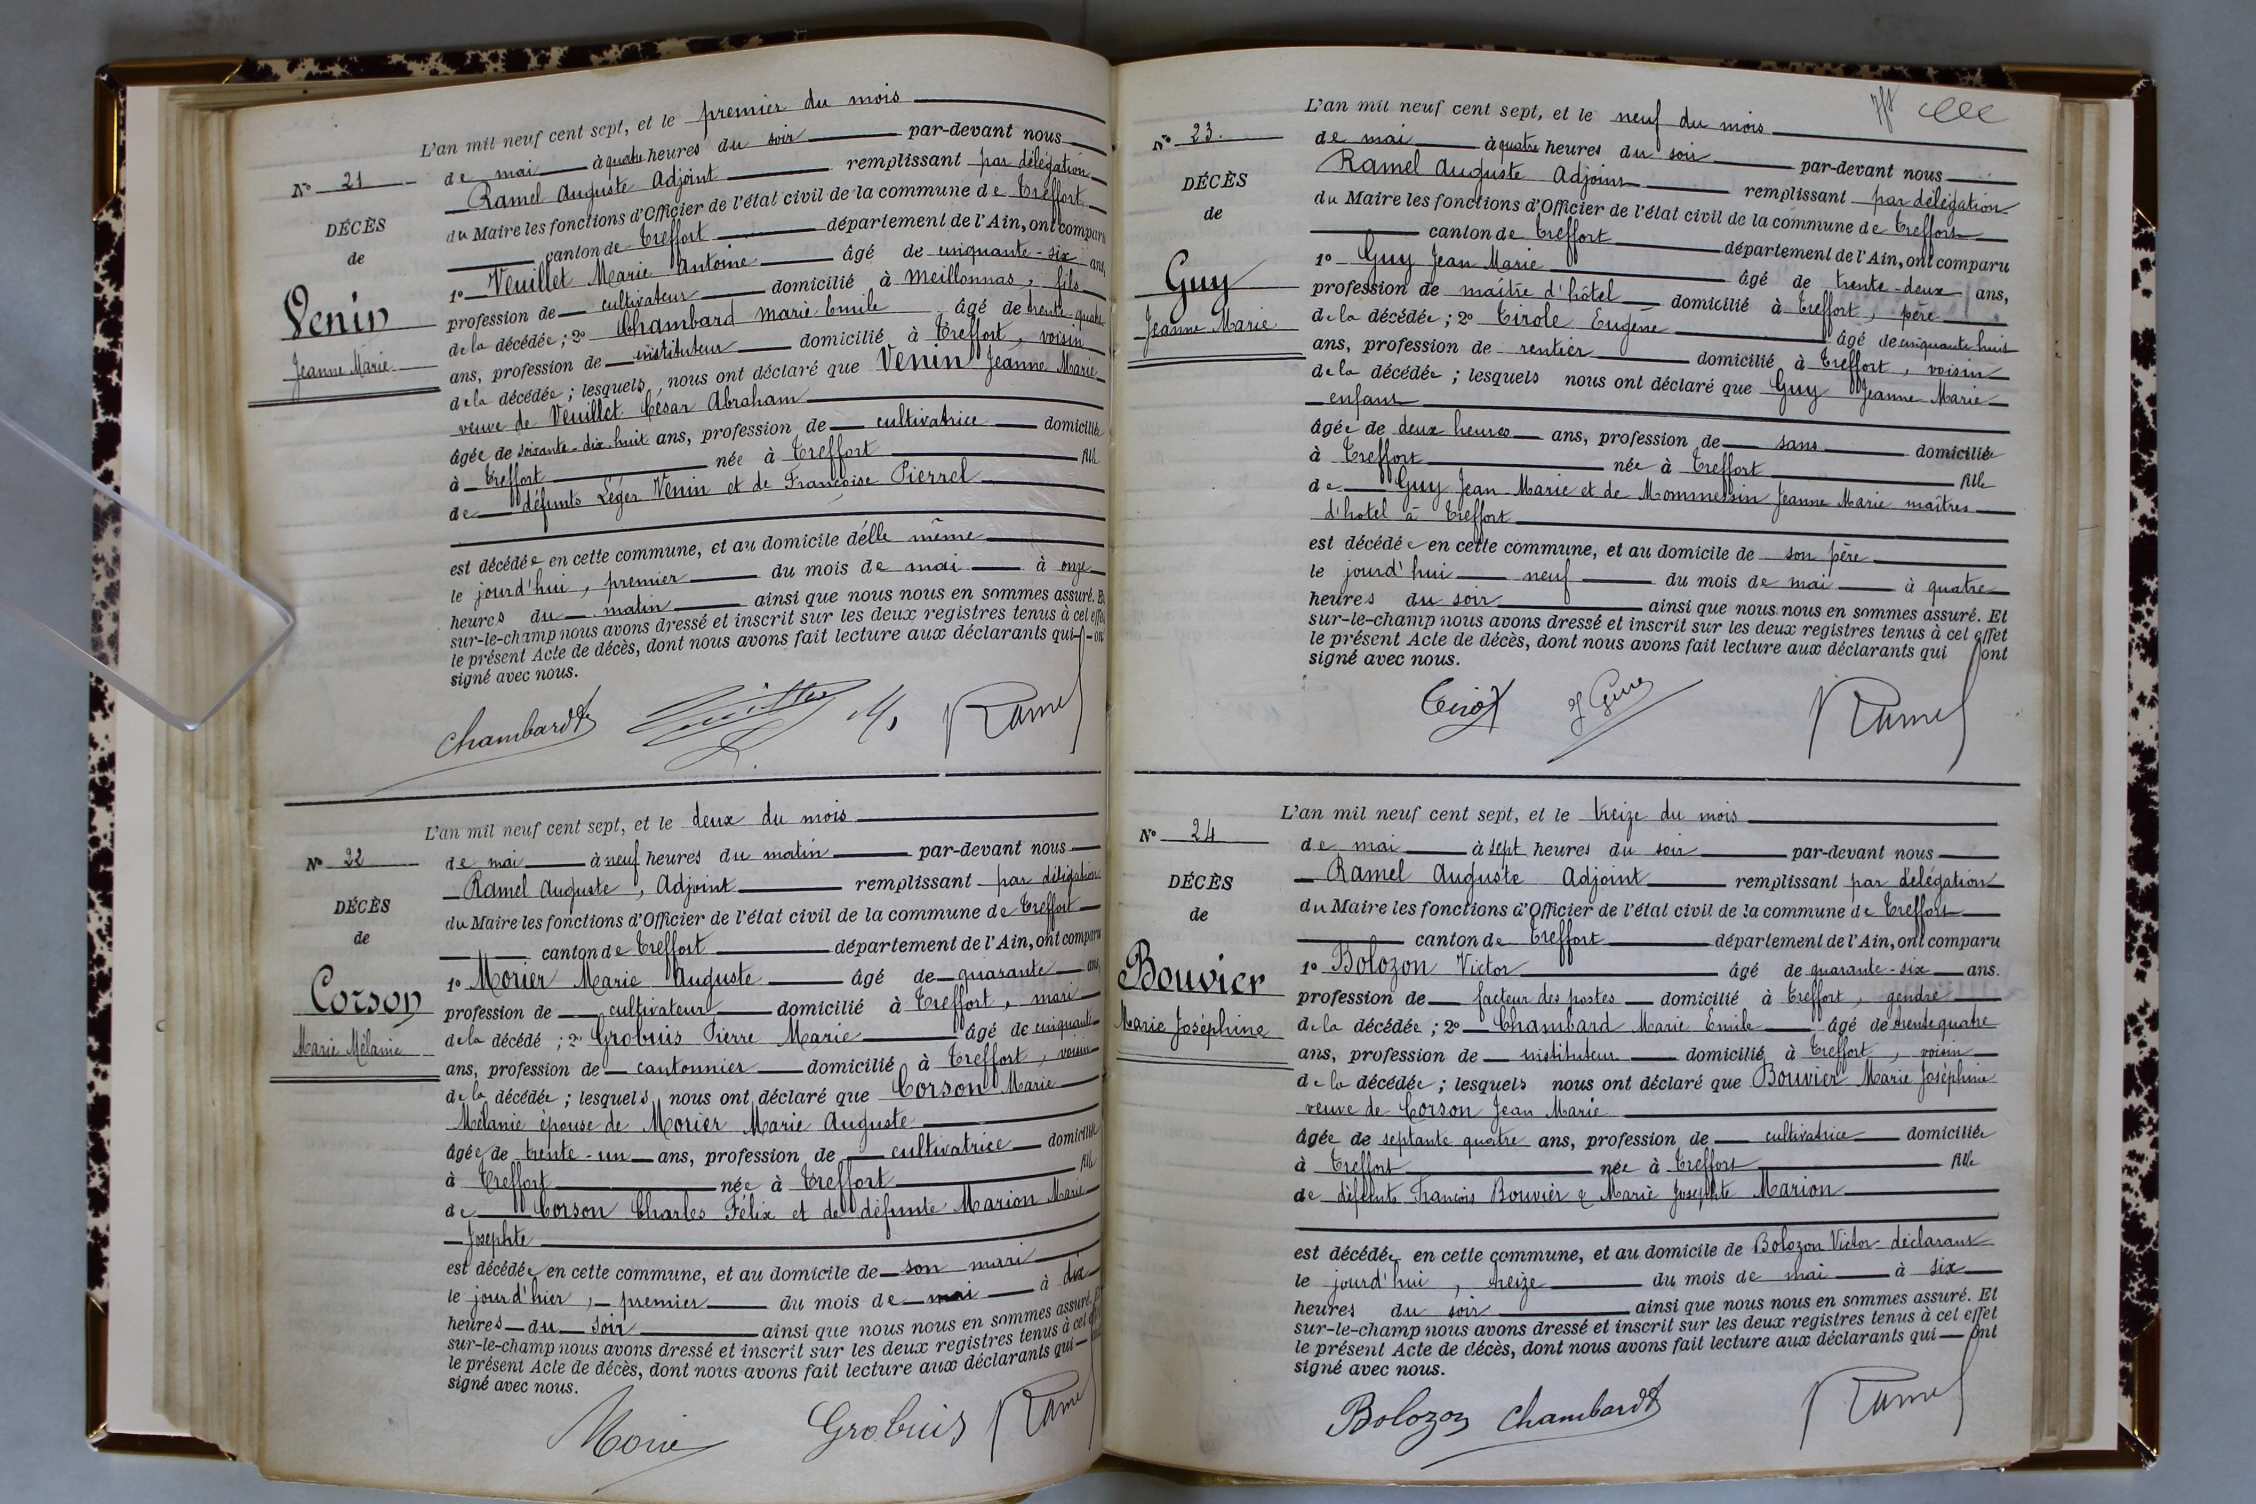 L'an mil neuf cent sept, et le premier du mois
N° 21
de mai à quatre heures du soir par-devant nous
Ramel Auguste Adjoint remplissant par délégation
DÉCÈS
du Maire les fonctions d'Officier de l'état civil de la commune de Treffort
de
canton de Treffort département de l'Ain, ont comparu
1° Veuillet Marie Antoine âgé de cinquante-six ans,
Venin
profession de cultivateur domicilié à Meillonnas, fils
de la décédée ; 2° Chambard Marie Emile âgé de trente-quatre
Jeanne Marie
ans, profession de instituteur domicilié à Treffort, voisin
de la décédée ; lesquels, nous ont déclaré que Venin Jeanne Marie
veuve de Veuillet César Abraham
âgée de soixante-dix-huit ans, profession de cultivatrice domiciliée
à Treffort née à Treffort fille
de défunts Léger Venin et de Françoise Pierrel
est décédée en cette commune, et au domicile d'elle même
le jourd'hui, premier du mois de mai à onze
heures du matin ainsi que nous nous en sommes assuré. Et
sur-le-champ nous avons dressé et inscrit sur les deux registres tenus à cel effet
le présent Acte de décès, dont nous avons fait lecture aux déclarants qui ont
signé avec nous.
Chambard Ramel
L'an mil neuf cent sept, et le deux du mois
N° 22
de mai à neuf heures du matin par-devant nous
Ramel Auguste, Adjoint remplissant par délégation
DÉCÈS
du Maire les fonctions d'Officier de l'état civil de la commune de Treffort
de
canton de Treffort département de l'Ain, ont comparu
Corson
1° Morier Marie Auguste âgé de quarante ans,
profession de cultivateur domicilié à Treffort, mari
Marie Mélanie
de la décédé ; 2° Grobuis Pierre Marie âgé de cinquante
ans, profession de cantonnier domicilié à Treffort, voisin
de la décédée ; lesquels, nous ont déclaré que Corson Marie
Mélanie épouse de Morier Marie Auguste
âgée de trente-un ans, profession de cultivatrice domiciliée
à Treffort née à Treffort fille
de Corson Charles Félix et de défunte Marion Marie
Josephte
est décédée en cette commune, et au domicile de son mari
le jourd'hier, premier du mois de mai à dix
heures du soir ainsi que nous nous en sommes assuré. Et
sur-le-champ nous avons dressé et inscrit sur les deux registres tenus à cel effet
le présent Acte de décès, dont nous avons fait lecture aux déclarants qui
signé avec nous.
Morier Grobuis Ramel
L'an mil neuf cent sept, et le neuf du mois
N° 23.
de mai à quatre heures du soir par-devant nous
Ramel Auguste Adjoint remplissant par délégation
DÉCÈS
du Maire les fonctions d'Officier de l'état civil de la commune de Treffort
de
canton de Treffort département de l'Ain, ont comparu
1° Guy Jean Marie âgé de trente-deux ans,
Guy
profession de maître d'hôtel domicilié à Treffort, père
de la décédée ; 2° Tirole Eugène âgé de cinquante huit
Jeanne Marie
ans, profession de rentier domicilié à Treffort, voisin
de la décédée ; lesquels nous ont déclaré que Guy Jeanne Marie
enfant
âgée de deux heures ans, profession de sans domiciliée
à Treffort née à Treffort fille
de Guy Jean-Marie et de Mommessin Jeanne Marie maîtres
d'hotel à Treffort
est décédée en cette commune, et au domicile de son père
le jourd'hui neuf du mois de mai à quatre
heures du soir ainsi que nous nous en sommes assuré. Et
sur-le-champ nous avons dressé et inscrit sur les deux registres tenus à cel effet
le présent Acte de décès, dont nous avons fait lecture aux déclarants qui ont
signé avec nous.
J Guy Ramel
L'an mil neuf cent sept, et le treize du mois
N° 24
de mai à sept heures du soir par-devant nous
Ramel Auguste Adjoint remplissant par délégation
DÉCÈS
du Maire les fonctions d'Officier de l'état civil de la commune de Treffort
de
canton de Treffort département de l'Ain, ont comparu
Bouvier
1° Bolozon Victor âgé de quarante-six ans.
profession de facteur des postes domicilié à Treffort, gendre
Marie Joséphine
de la décédée ; 2° Chambard Marie Emile âgé de trente quatre
ans, profession de instituteur domicilié à Treffort, voisin
de la décédée ; lesquels nous ont déclaré que Bouvier Marie Joséphine
veuve de Corson Jean Marie
âgée de septante quatre ans, profession de cultivatrice domiciliée
à Treffort née à Treffort fille
de défunts François Bouvier & Marie Josephte Marion
est décédée en cette commune, et au domicile de Bolozon Victor déclarant
le jourd'hui, treize du mois de mai à six
heures du soir ainsi que nous nous en sommes assuré. Et
sur-le-champ nous avons dressé et inscrit sur les deux registres tenus à cel effet
le présent Acte de décès, dont nous avons fait lecture aux déclarants qui ont
signé avec nous.
Bolozon Chambard Ramel